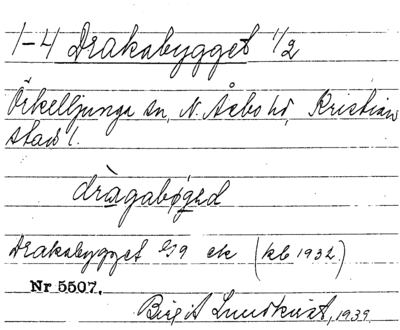 1-4 Drakabygget 1/2
Örkelljunga sn, N. Åsbo hd, Kristian
stad l.
dràgabøged
Drakabygget by ek (kb 1932)
Nr 5507.
Birgit Lundkvist, 1939